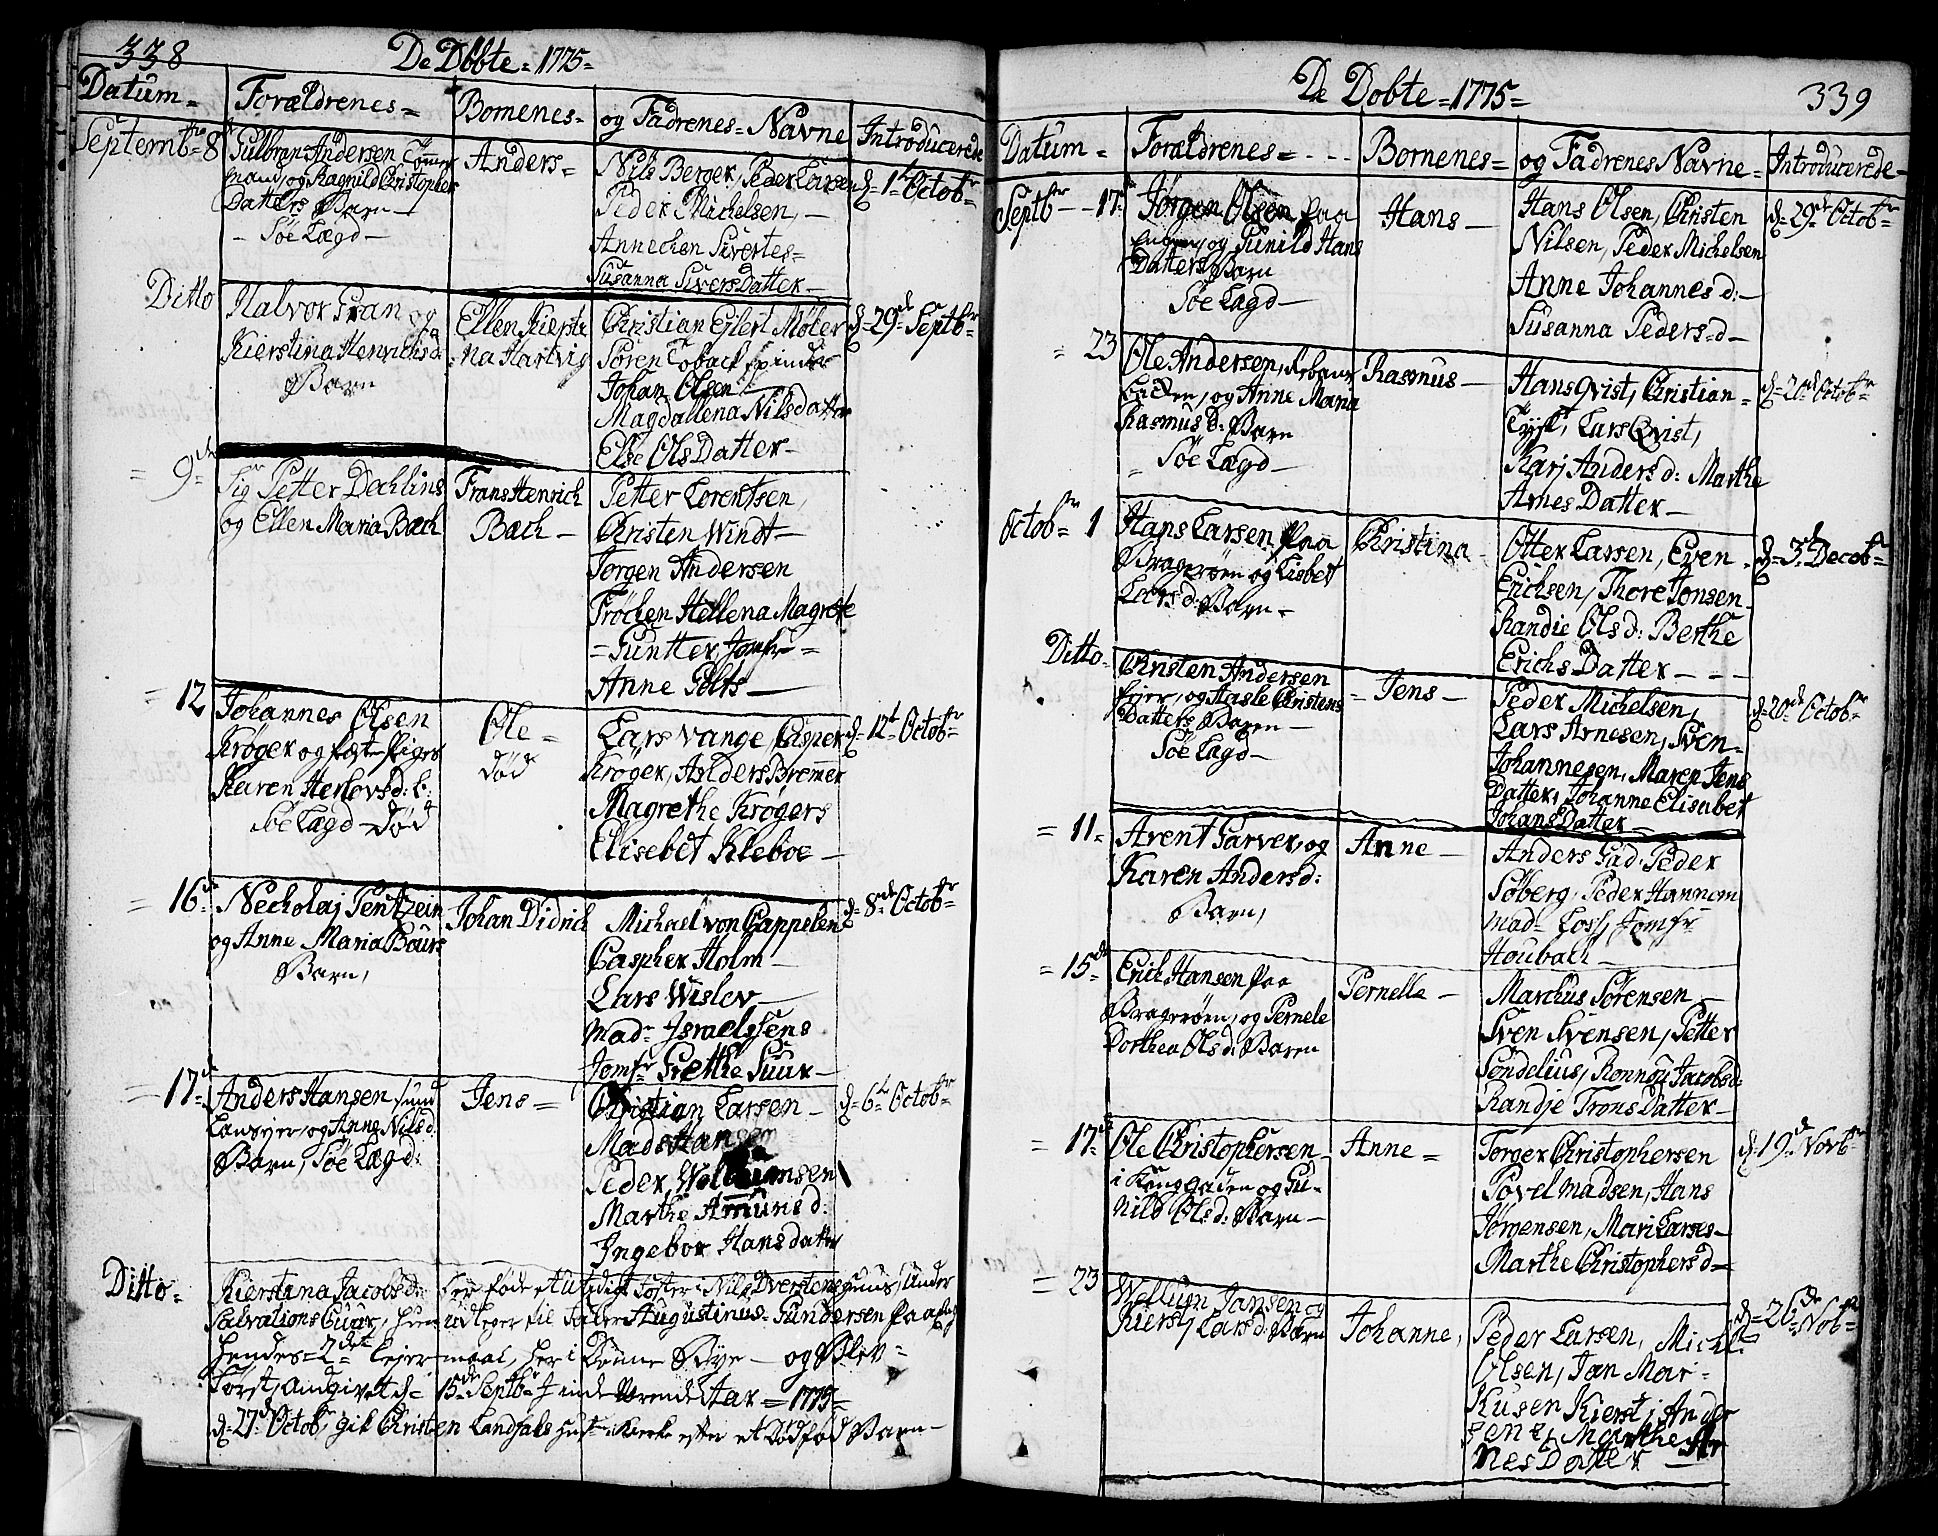 338
De Døbte = 1775 =
Datum =
Forældrenes =
Bornenes =
og Fadrenes = Navne
Introducerede
Septemb: 8
Gulbran Andersen Tømmer
mand, og Ragnild Christopher
Datters Barn —
- Søe Lægd —
Anders =
Nils Berger, Peder Larsen
Peder Michelsen, —
Annechen Sivertes =
Susanna Sivers Datter —
d = 1t Octobr =
Ditto
Halvor Gran og
Kierstina Henrichsd
Barn
Ellen Kiersti
na Hartvig
Christian Eilert Møller
Søren Toback spinder
Johan Olsen
Magdallena Nilsdatter
Else Ols Datter —
d = 29de Septbr =
= 9de
Sigr Petter Dechlins
og Ellen Maria Bach
Frans Henrich
Bach —
Petter Lorentsen,
Christen Windt —
Jørgen Andersen
Frøchen Hellena Magrete
= Guntter, Jomfr =
Anne Pelts —
= 12
Johannes Olsen
Krøger og fæste Piges
Karen Herlovsd: b:
Søe Lægd — Død
Ole =
Død
Lars Vange, Casper
Krøger, Anders Bremer
Magrethe Krøgers
Elisebet Kleboe —
d = 12t Octobr =
= 16de
Necholaj Gentzein
og Anne Maria Bours
Barn,
Johan Didrich
Michael von Cappelen
Caspher Holm —
Lars Wislev —
Madr Israelssens
Jomfr Grethe Suur —
d = 8de Octobr =
= 17de
Anders Hansen, sund
og Anne Nilsd:
Barn, Søe Lægd:
Jens =
Christian Larsen —
Mads Hansen
Peder
Marthe Amunsd:
Ingebor Hansdatter
d = 6t Octobr =
Ditto =
Kierstina Jacobsd:
Salvations
hendes = 2det leiermaal, her i Denne Bye — og Blev =
Først, Andgivet d = 15de Septbr inde Værende Aar = 1775 =
d = 27de Octob: gik Christen Landfalds efter et Dødfød Barn —
De Dobte = 1775 =
339
Datum =
Forældrenes = - - -
Bornenes =
og Fadrenes Navne =
Introducerede —
Septbr — 17de
Jørgen Olsen paa
og Gunild Hans
Datters Barn
Søe Lagd —
Hans —
Hans Olsen, Christen
Nilsen, Peder Michelsen
Anne Johannes d: —
Susanna Peders = d —
d = 29de Octobr =
= 23
Ole Andersen,
og Anne Maria
Rasmus d: Barn
= Søe Lagd —
Rasmus —
Hans Qvist, Christian =
Tyst, Lars Qvist,
Karj Anders d: Marthe
Arnes Datter —
d = 20de Octobr =
Octobr = 1
Hans Larsen paa
Bragerøen og Lisbet
Lars d: Barn =
Christina
Otter Larsen, Even
Erichsen, Thore Jonsen
Randie Ols d: Berthe
Erichs Datter - - -
d = 3t Decobr =
Ditto =
Christen Andersen
og Aasle Christens
Datters Barn —
Søe Lagd —
= Jens —
Peder Michelsen,
Lars Arnesen, Sven =
Johannesen, Maren Jens
Datter, Johanne Elisabet
Johans Datter —
d = 20de Octobr =
= 11 =
Arent Garver, og
Karen Andersd:
Barn,
Anne —
Anders Gad, Peder
Søberg, Peder Hannem
Mad = Loss, Jomfr
Houbach —
= 15de
Erich Hansen paa
Bragerøen, og Pernele
Dorthea Ols d: Barn
Pernelle —
Marchus Sørensen —
Sven Svensen, Petter
Sendelius, Rønnou Jacobsd:
Randje Trons Datter —
= 17de
Ole Christophersen
i Kongsgaden og Gu =
nild Ols d: Barn —
Anne =
Torger Christophersen
Povel Madsen, Hans
Jørgensen, Mari Larses —
Marthe Christophersd —
d = 19de Novbr
= 23
Wellum Jansen og
Kierstj Lars d: Barn
Johanne,
Peder Larsen, Michl
Olsen, Jan Mar =
kusen Kierstj Ander
sen, Marthe Ar
nes Datter —
d = 26de Nobr =